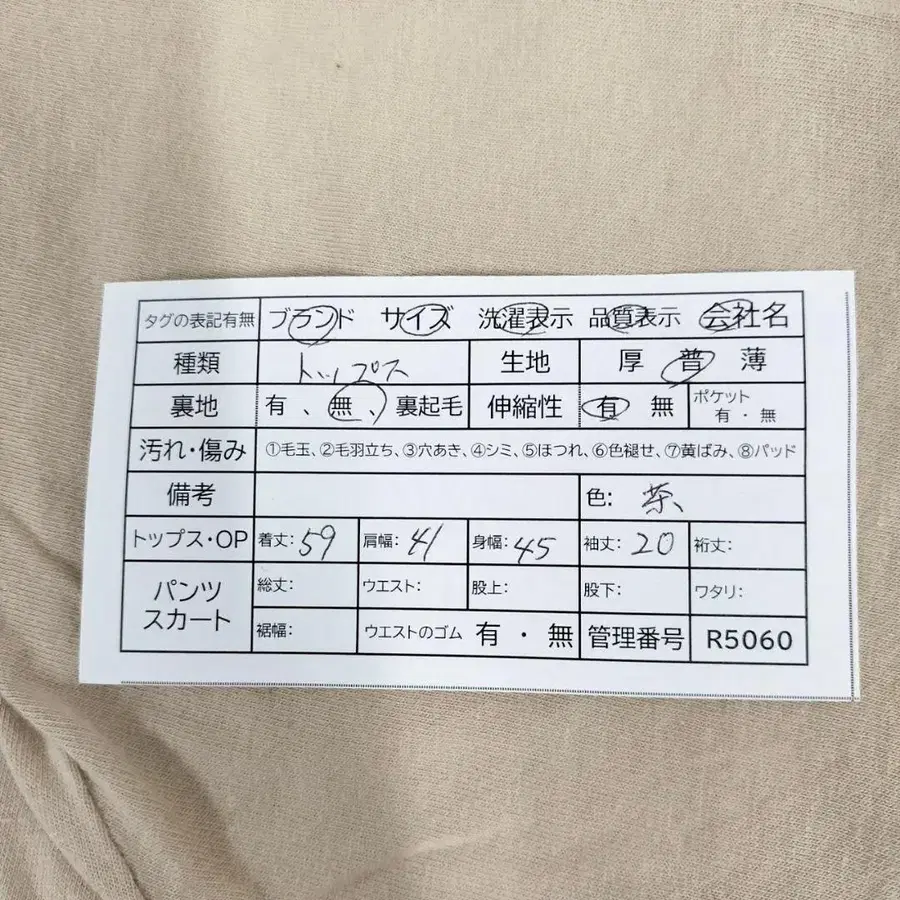 タグの表記有無 ブランド サイズ 洗濯表示 品質表示 会社名
種類 トップス 生地 厚 普 薄
裏地 有 、 無 、 裏起毛 伸縮性 有 無 ポケット 有 ・ 無
汚れ・傷み ①毛玉、②毛羽立ち、③穴あき、④シミ、⑤ほつれ、⑥色褪せ、⑦黄ばみ、⑧パッド
備考 色: 茶、
トップス・OP 着丈: 59 肩幅: 41 身幅: 45 袖丈: 20 裄丈:
パンツ スカート 総丈: ウエスト: 股上: 股下: ワタリ:
裾幅: ウエストのゴム 有 ・ 無 管理番号 R5060